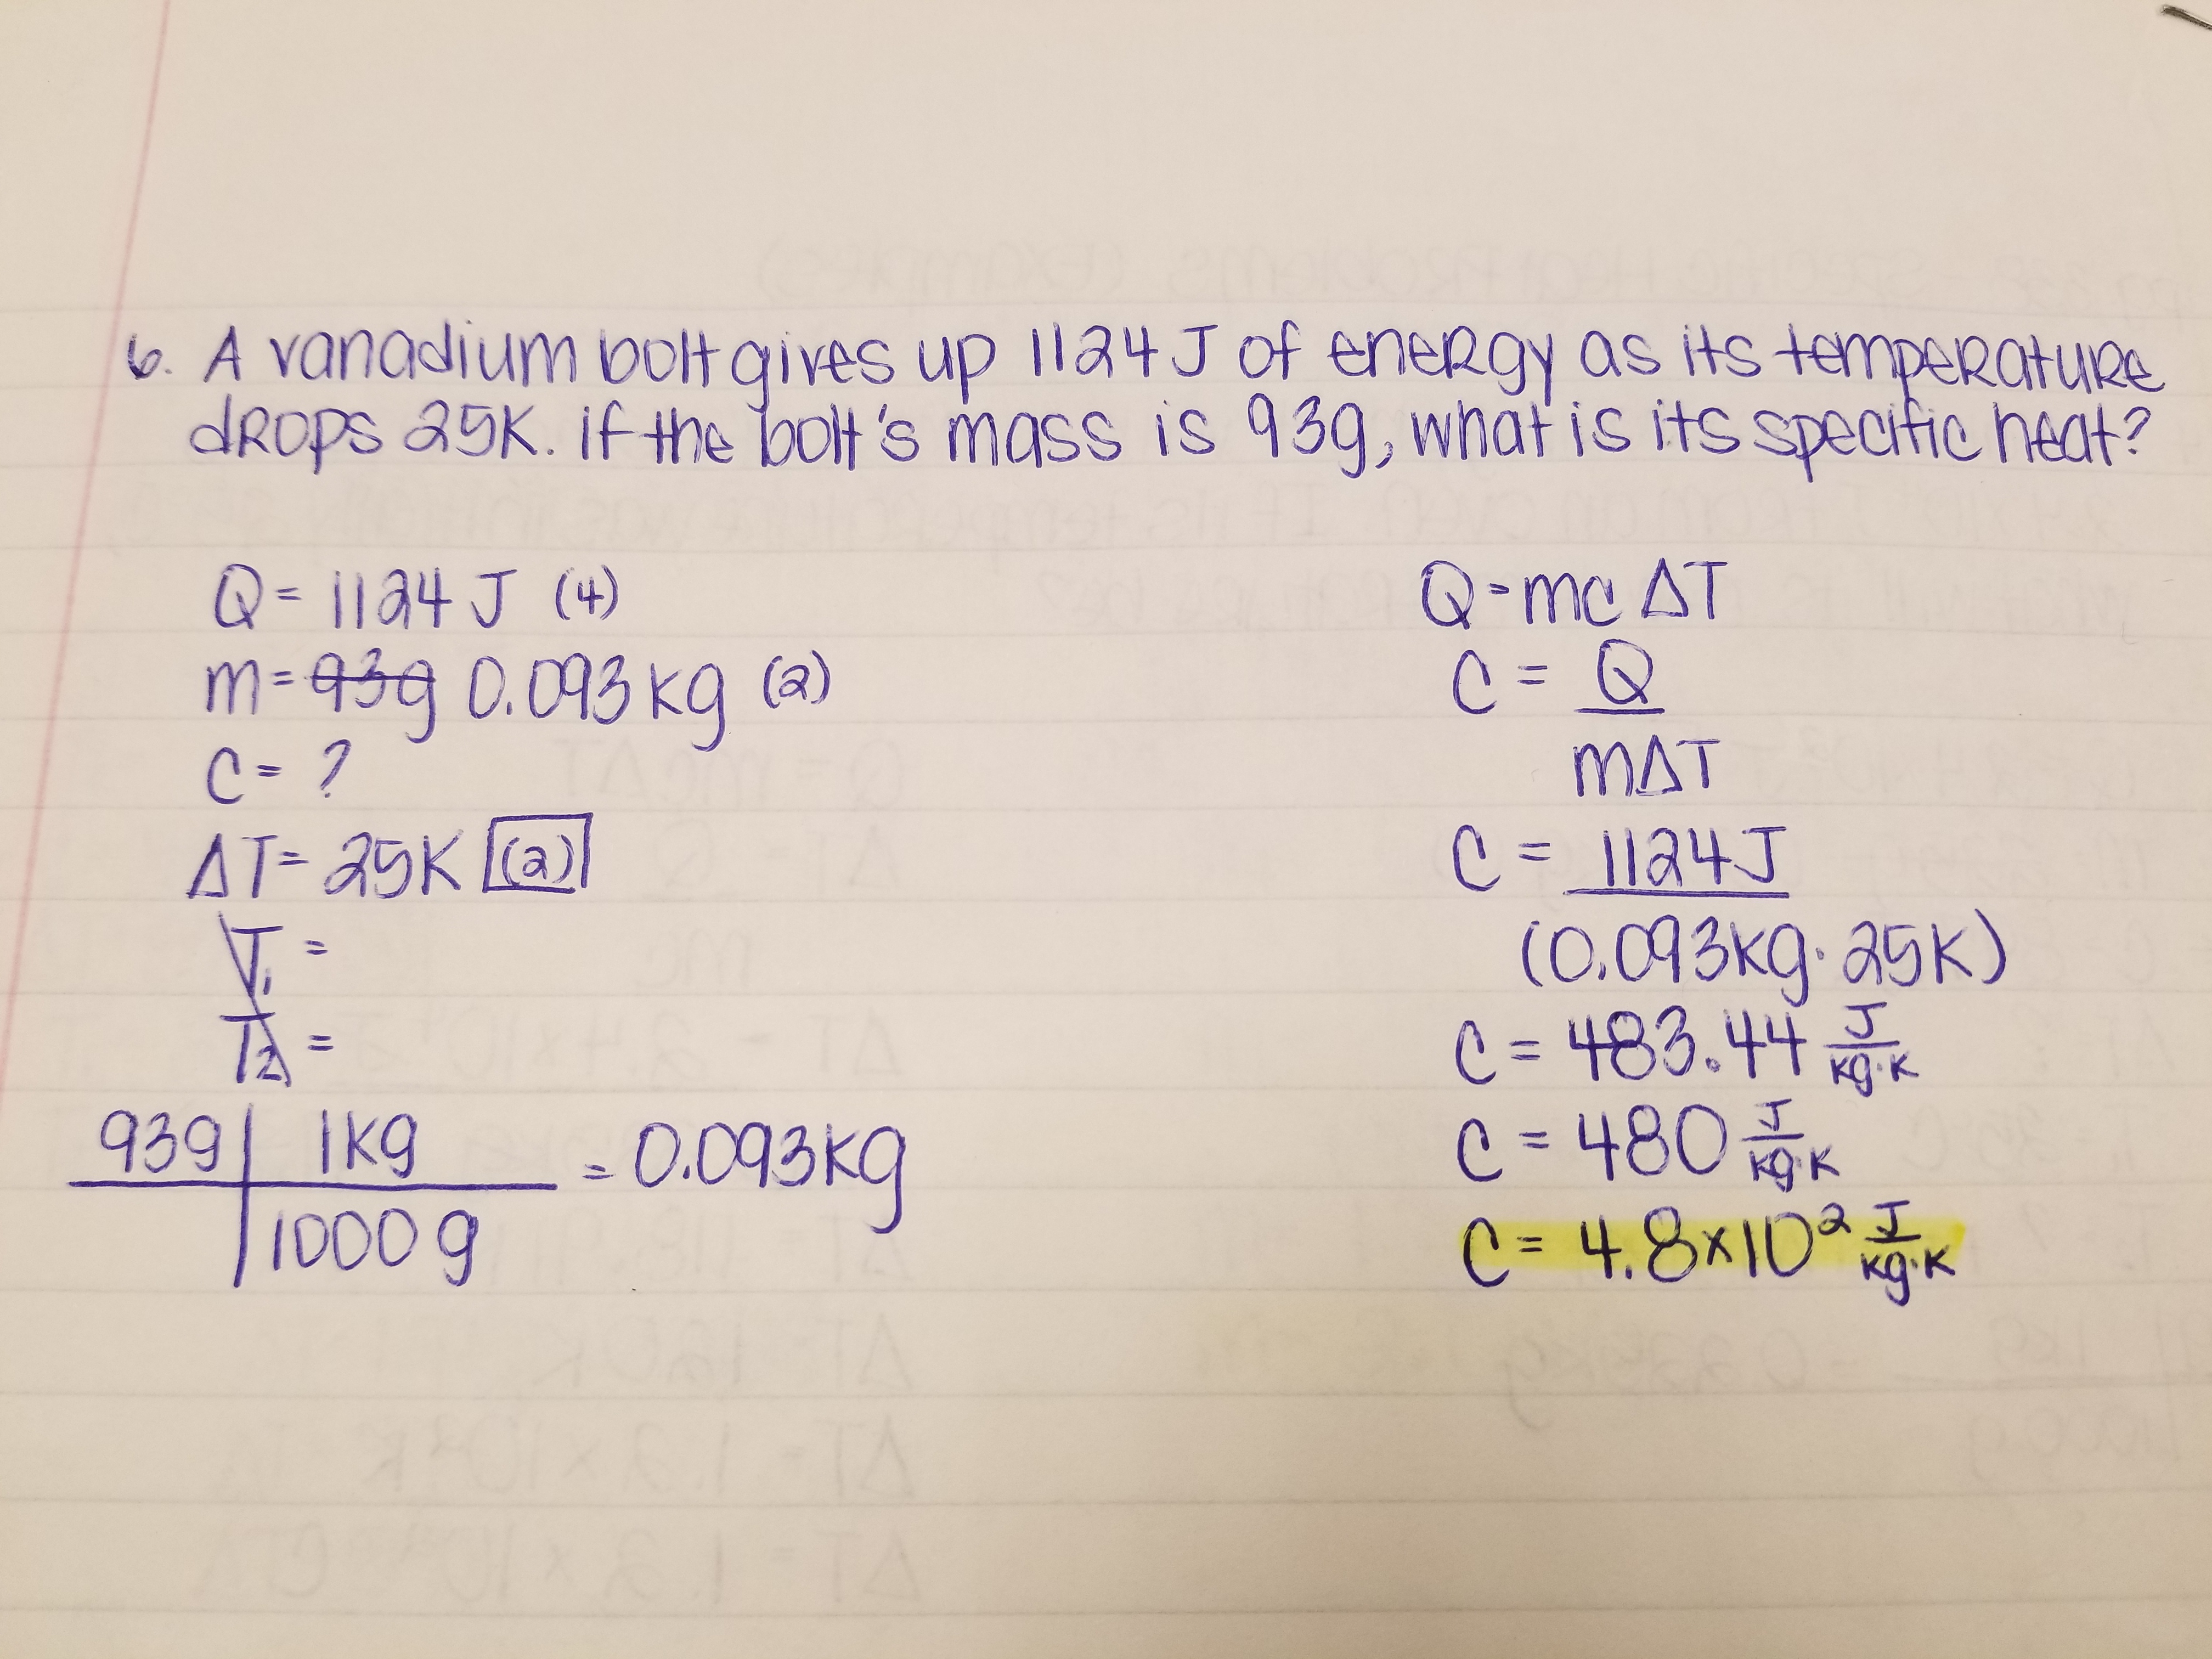 6. A vanadium bolt gives up 1124 J of energy as its temperature
drops 25K. If the bolt's mass is 93g, what is its specific heat?
Q = 1124 J (4)
m = 93g 0.093 kg (2)
C = ?
ΔT = 25K (2)
T₁ =
T₂ =
93g | 1kg
| 1000 g
= 0.093kg
Q = mcΔT
C = Q
mΔT
C = 1124 J
(0.093kg · 25K)
C = 483.44 J/kg·K
C = 480 J/kg·K
C = 4.8 x 10² J/kg·K